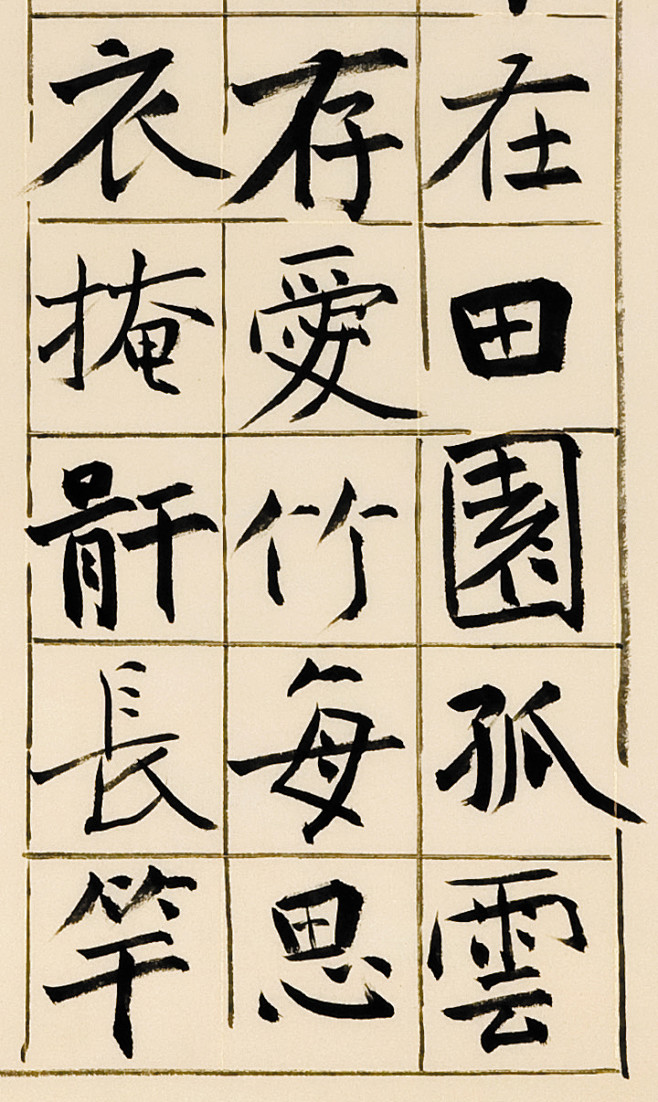 在田園孤雲
存愛竹每思
衣掩骭長竿